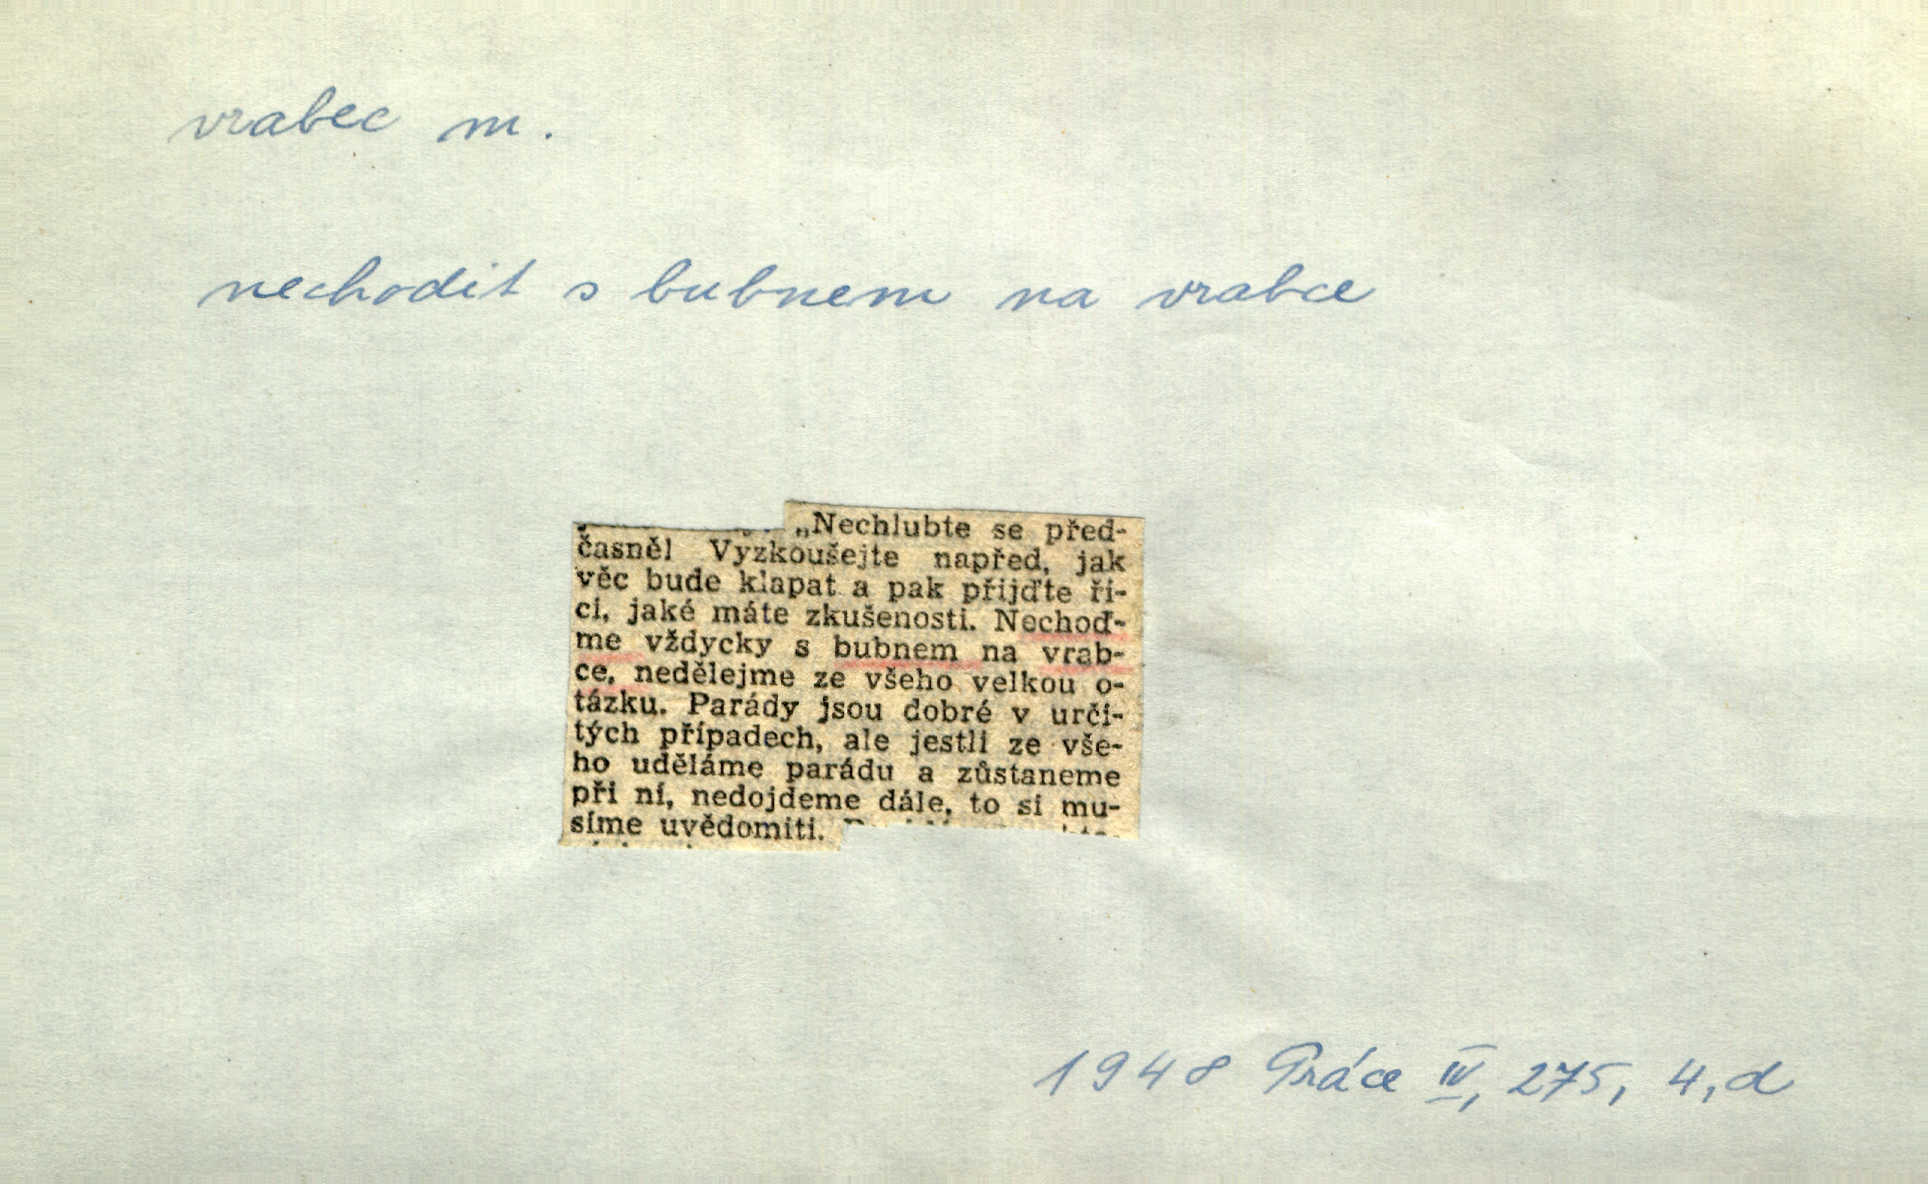 vrabec m.
nechodit s bubnem na vrabce
„Nechlubte se před-
časně! Vyzkoušejte napřed, jak
věc bude klapat a pak přijďte ří-
ci, jaké máte zkušenosti. Nechoď-
me vždycky s bubnem na vrab-
ce, nedělejme ze všeho velkou o-
tázku. Parády jsou dobré v urči-
tých případech, ale jestli ze vše-
ho uděláme parádu a zůstaneme
při ní, nedojdeme dále, to si mu-
síme uvědomiti.
1948 Práce IV, 275, 4, d